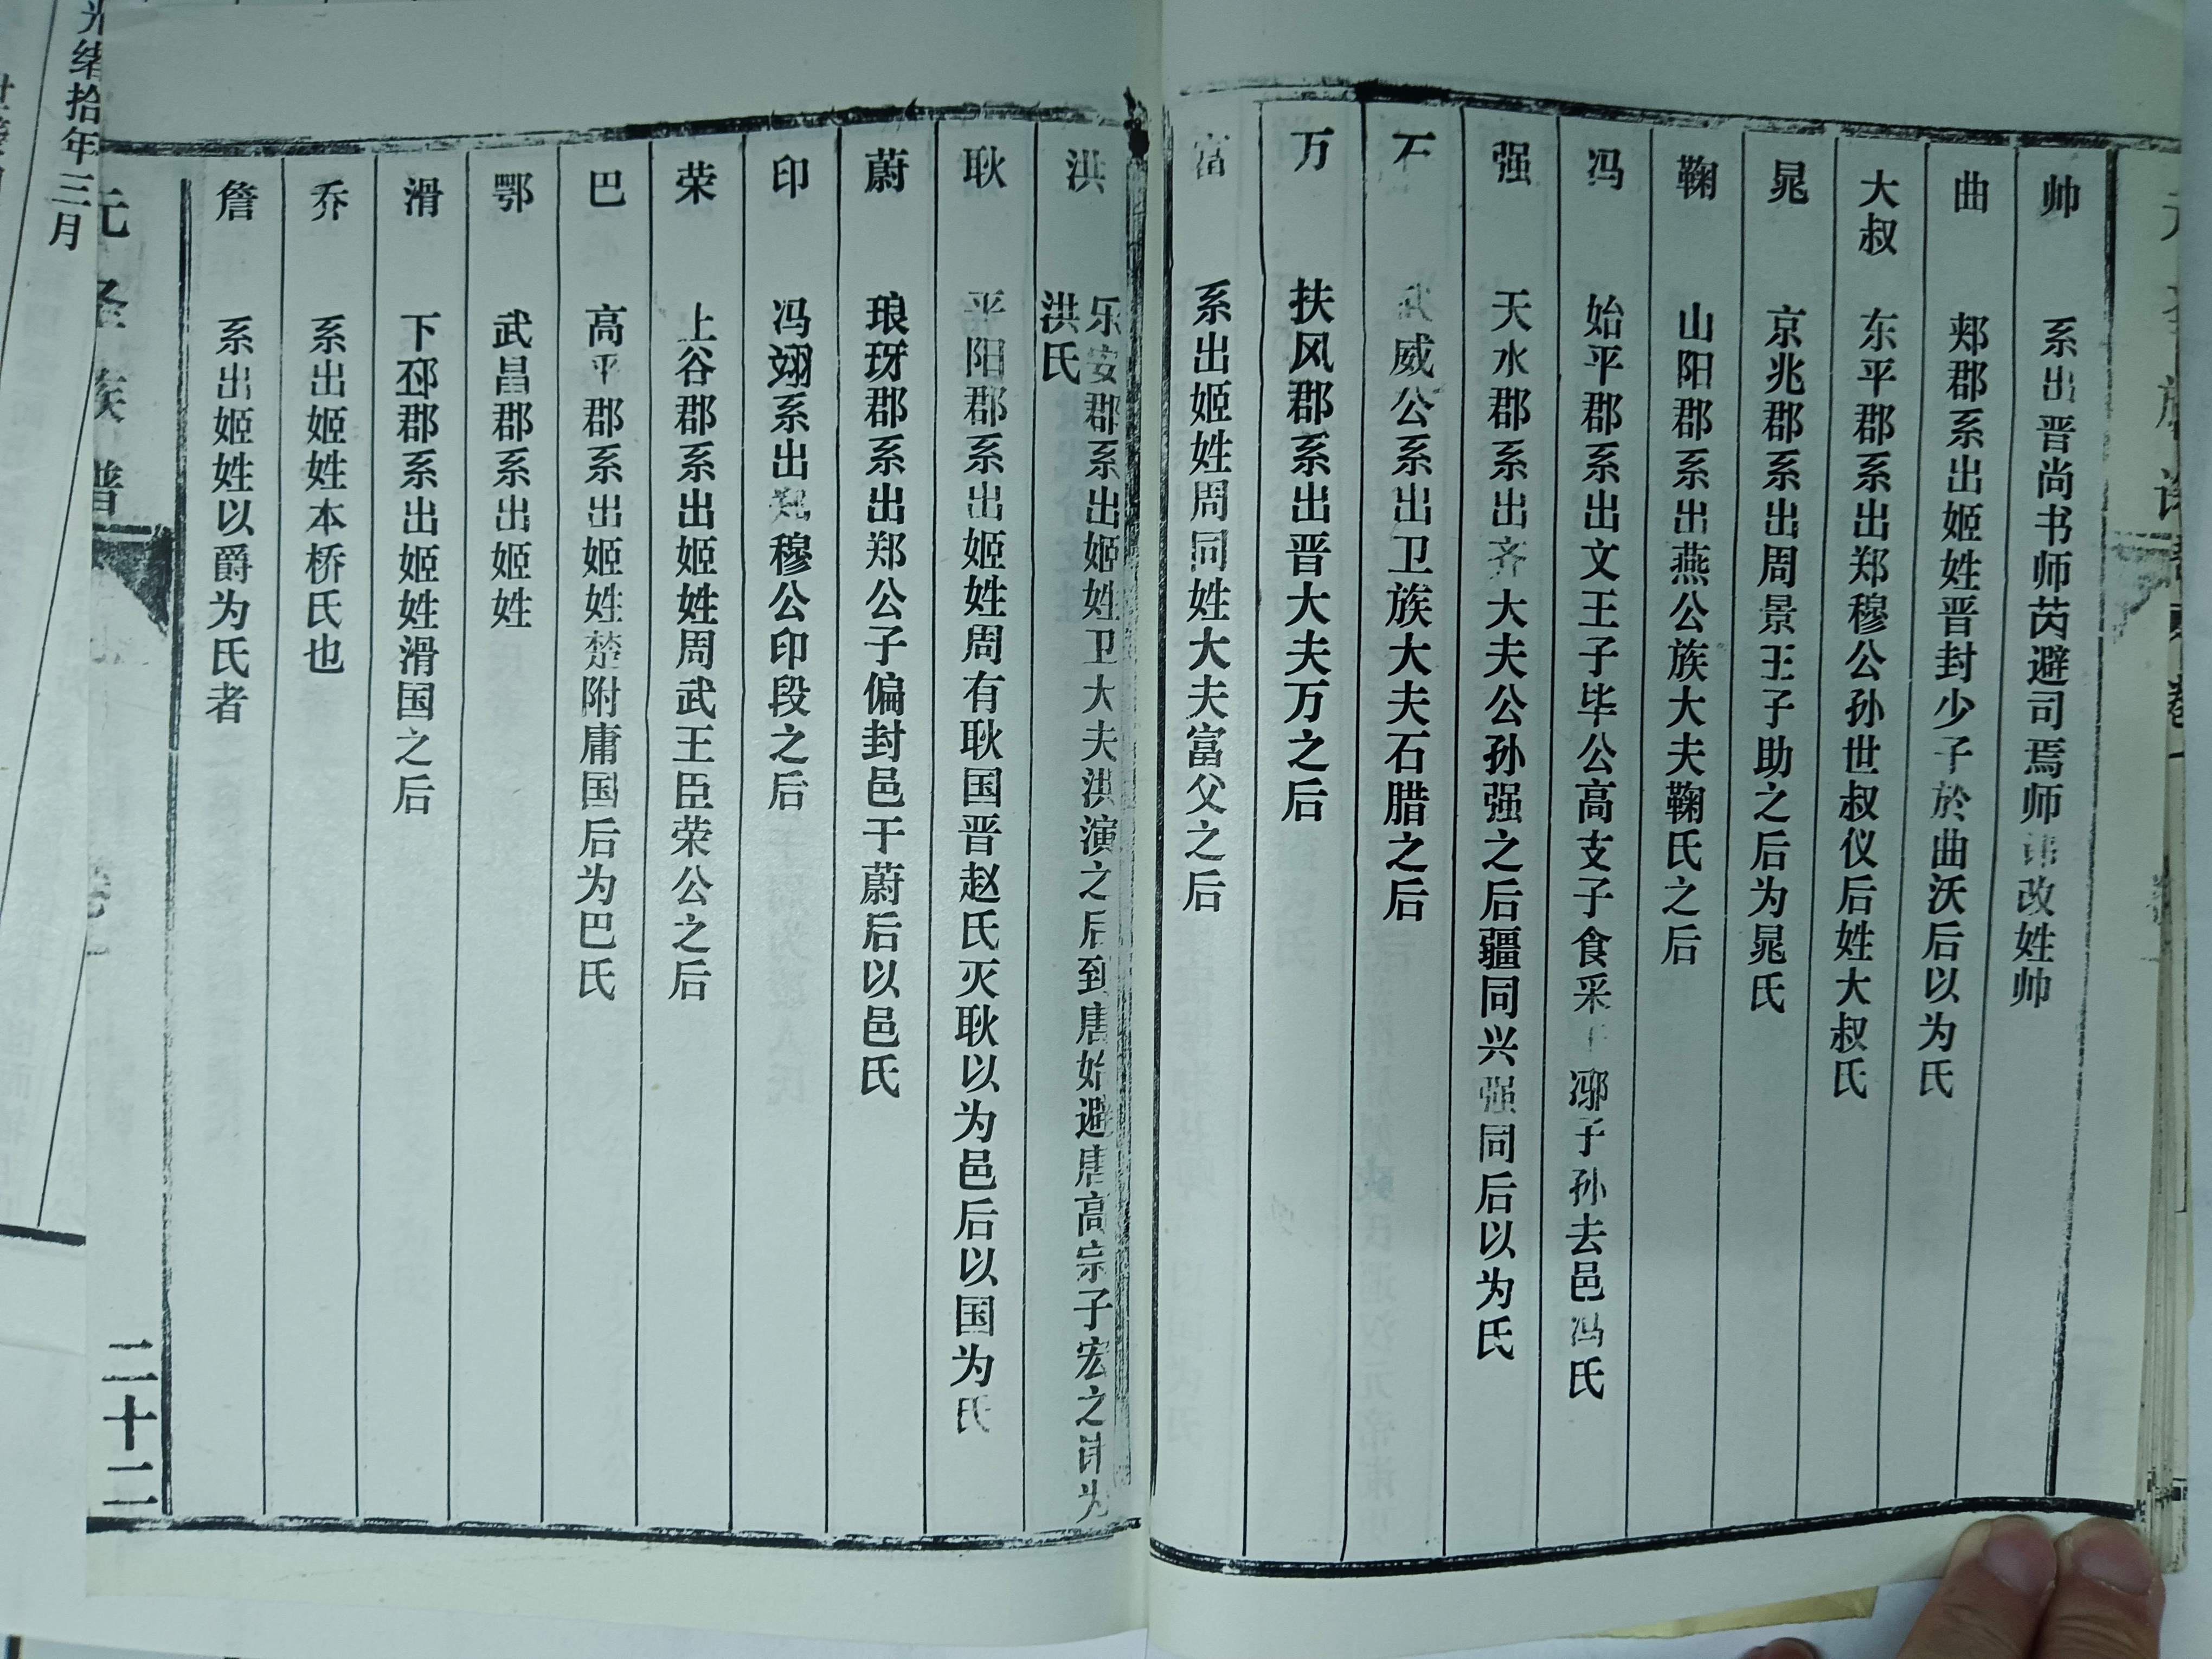 帅 系出晋尚书师芮避司焉师讳改姓帅
曲 郏郡系出姬姓晋封少子於曲沃后以为氏
大叔 东平郡系出郑穆公孙世叔仪后姓大叔氏
晁 京兆郡系出周景王子助之后为晁氏
鞠 山阳郡系出燕公族大夫鞠氏之后
冯 始平郡系出文王子毕公高支子食采于鄢子孙去邑冯氏
强 天水郡系出齐大夫公孙强之后疆同兴强同后以为氏
石 武威公系出卫族大夫石腊之后
万 扶风郡系出晋大夫万之后
富 系出姬姓周同姓大夫富父之后
洪 乐安郡系出姬姓卫大夫洪演之后到唐始避唐高宗子宏之讳为
洪氏
耿 平阳郡系出姬姓周有耿国晋赵氏灭耿以为邑后以国为氏
蔚 琅玡郡系出郑公子偏封邑于蔚后以邑氏
印 冯翊郡系出郑穆公印段之后
荣 上谷郡系出姬姓周武王臣荣公之后
巴 高平郡系出姬姓楚附庸国后为巴氏
鄂 武昌郡系出姬姓
滑 下邳郡系出姬姓滑国之后
乔 系出姬姓本桥氏也
詹 系出姬姓以爵为氏者
元圣族谱 卷一 二十二
光绪拾年三月